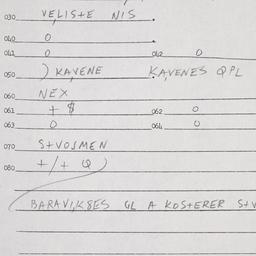 030 VELISTE NIS
040 0
041 0 042 0
050 ) KAVENE KAVENES QPL
060 NEX
061 + $ 062 0
063 0 064 0
070 STVOJMEN
080 +/+ Q )
BARAVI,K8ES GL A KOSTERER STV